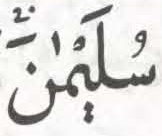 سُلَيْمٰنَ ۚ